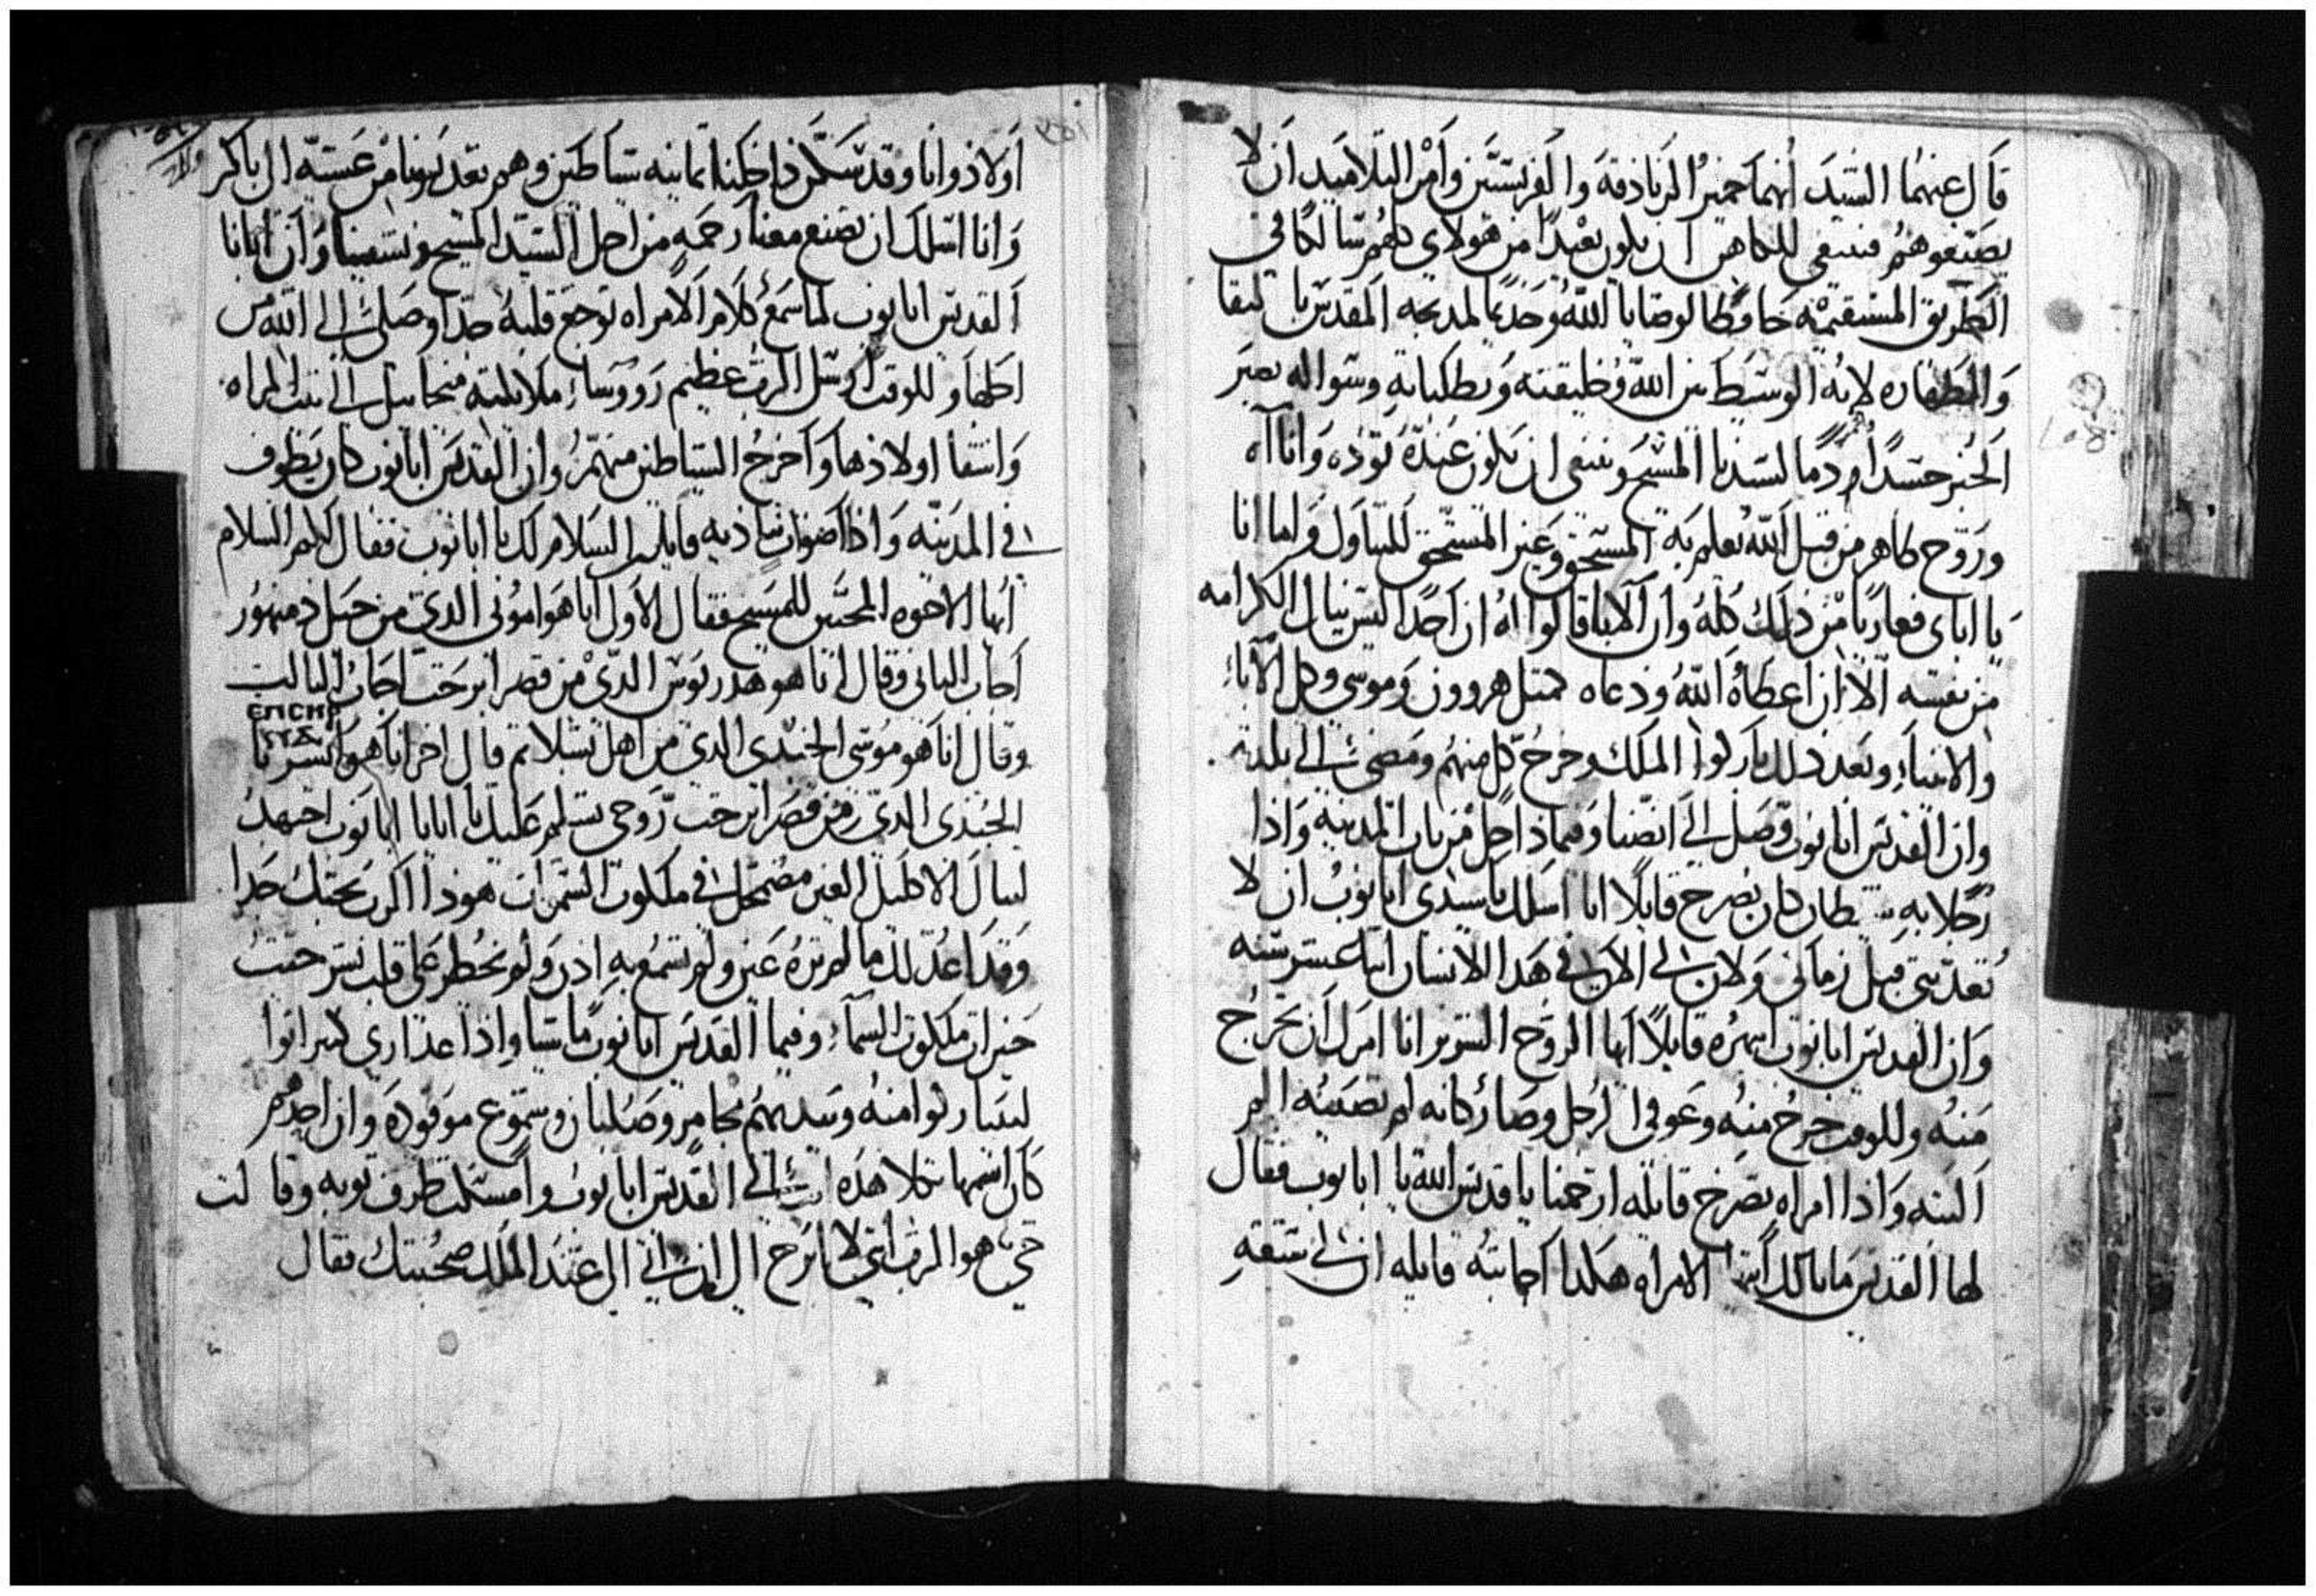 قال عنهما السيد انهما خمير الزنادقة والفريسيين وامر التلاميد ان لا
يصنعوهم فينبغي للكاهن ان يكون بعيدًا من هولاي كلهم سالكًا في
الطريق المستقيمة حافظا لوصايا الله وخديما لمدبحه المقدس بالنقا
والطهاره لانه الوسيط بين الله وخليقته وبطلباته وسواله يصير
الخبز جسدًا ودمًا لسيدنا المسيح وينبغي ان يكون عنده توده واناه
وروح طاهر من قبل الله يعلم به المستحق وغير المستحق للتناول واما انا
يا اباى فعاريا من ذلك كله وان الابا قالوا له ان احدًا ليس ينال الكرامه
من نفسه الا ان اعطاه الله ودعاه كمتل هرون وموسى وكل الاباء
والانبياء وبعد ذلك باركوا الملك وخرج كل منهم ومضى الى بلده
وان القديس ابانوب وصل الى انصنا وفيما داخل من باب المدينة واذا
رجلا به شيطان كان يصرخ قايلًا انا اسلك يا سيدى ابانوب ان لا
تعدبني قبل زماني ولان لى الان في هدا الانسان اتنا عشر سنه
وان القديس ابانوب انتهره قايلًا ايها الروح الشرير انا امرك ان تخرج
منه وللوقت خرج منه وعوفي الرجل وصار كانه لم تصيبه الم
البته واذا امراه تصرخ قايله ارحمنا يا قديس الله يا ابانوب فقال
لها القديس ما بالك ايتها الامراه هكدا اجابته قايله ان لى ستة
اولاد وانا وقد سكن داخلنا تمانيه شياطين وهم يعدبونا من عشيه الى باكر
وانا اسلك ان تصنع معنا رحمه من اجل السيد المسيح وتشفينا وان ابانا
القديس ابانوب لما سمع كلام الامراه توجع قلبه جدًا وصلى الى الله من
اجلها وللوقت ارسل الرب عظيم روساء ملايكته ميخاييل الى تلك المراه
وانشفا اولادها واخرج الشياطين منهم وان القديس ابانوب كان يطوف
في المدينه واذا اصوات تناديه قايلين السلام لك يا ابانوب فقال لكم السلام
ايها الاخوه المحبين للمسيح فقال الاول انا هو امونى الدى من جبل دمنهور
اجاب التانى وقال انا هو هدريوس الدى من قصر ابرحت اجاب التالت
وقال انا هو موسى الجندى الدى من اهل بشلاتم قال اخر انا هو
ⲉⲡⲥⲓⲣ
الجندى الدى من قصر ابرحت روحى تسلم عليك يا ابانا ابانوب اجهد
لتنال الاكليل الغير مضمحل في ملكوت السموات هودا الرب يحبك جدا
وقد اعد لك ما لم تره عين ولم تسمع به ادن ولم يخطر على قلب بشر حيت
خيرات ملكوت السماء وفيما القديس ابانوب ماشيا واذا عداري كتير اتوا
ليتباركوا منه وبيدهم مجامر وصلبان وشموع موقوده وان احدهم
كان اسمها تكلا هده الى القديس ابانوب وامسكت طرف توبه وقالت
حي هو الرب اني لا ابرح الى عند الملك صحبتك فقال